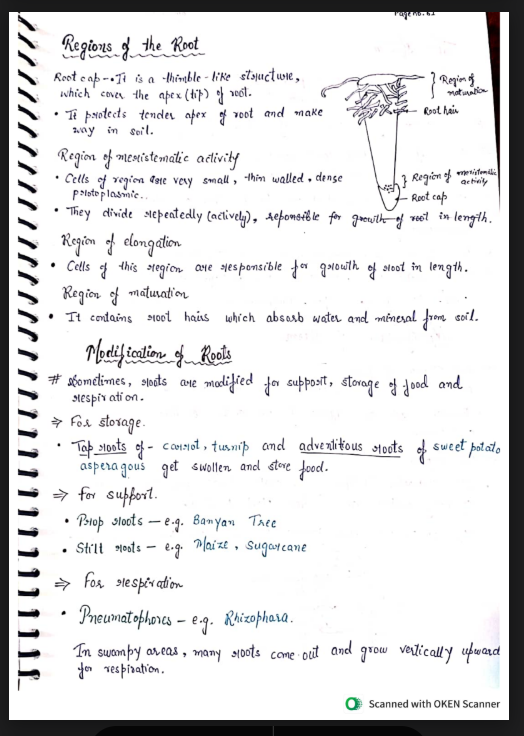 Page No. 61
Regions of the Root
Root cap -• It is a thimble-like structure,
which cover the apex (tip) of root.
• It protects tender apex of root and make
way in soil.
Region of maturation
Root hair
Region of meristematic activity
Root cap
Region of meristematic activity
• Cells of region are very small, thin walled, dense
protoplasmic..
• They divide repeatedly (actively), reponsible for growth of root in length.
Region of elongation
• Cells of this region are responsible for growth of root in length.
Region of maturation
• It contains root hairs which absorb water and mineral from soil.
Modification of Roots
# Sometimes, roots are modified for support, storage of food and
respiration.
⇒ For storage.
• Tap roots of - carrot, turnip and adventitious roots of sweet potato
asperagous get swollen and store food.
⇒ For support.
• Prop roots – e.g. Banyan Tree
• Still roots – e.g. Maize, Sugarcane
⇒ For respiration
• Pneumatophores – e.g. Rhizophara.
In swampy areas, many roots come out and grow vertically upward
for respiration.
Scanned with OKEN Scanner